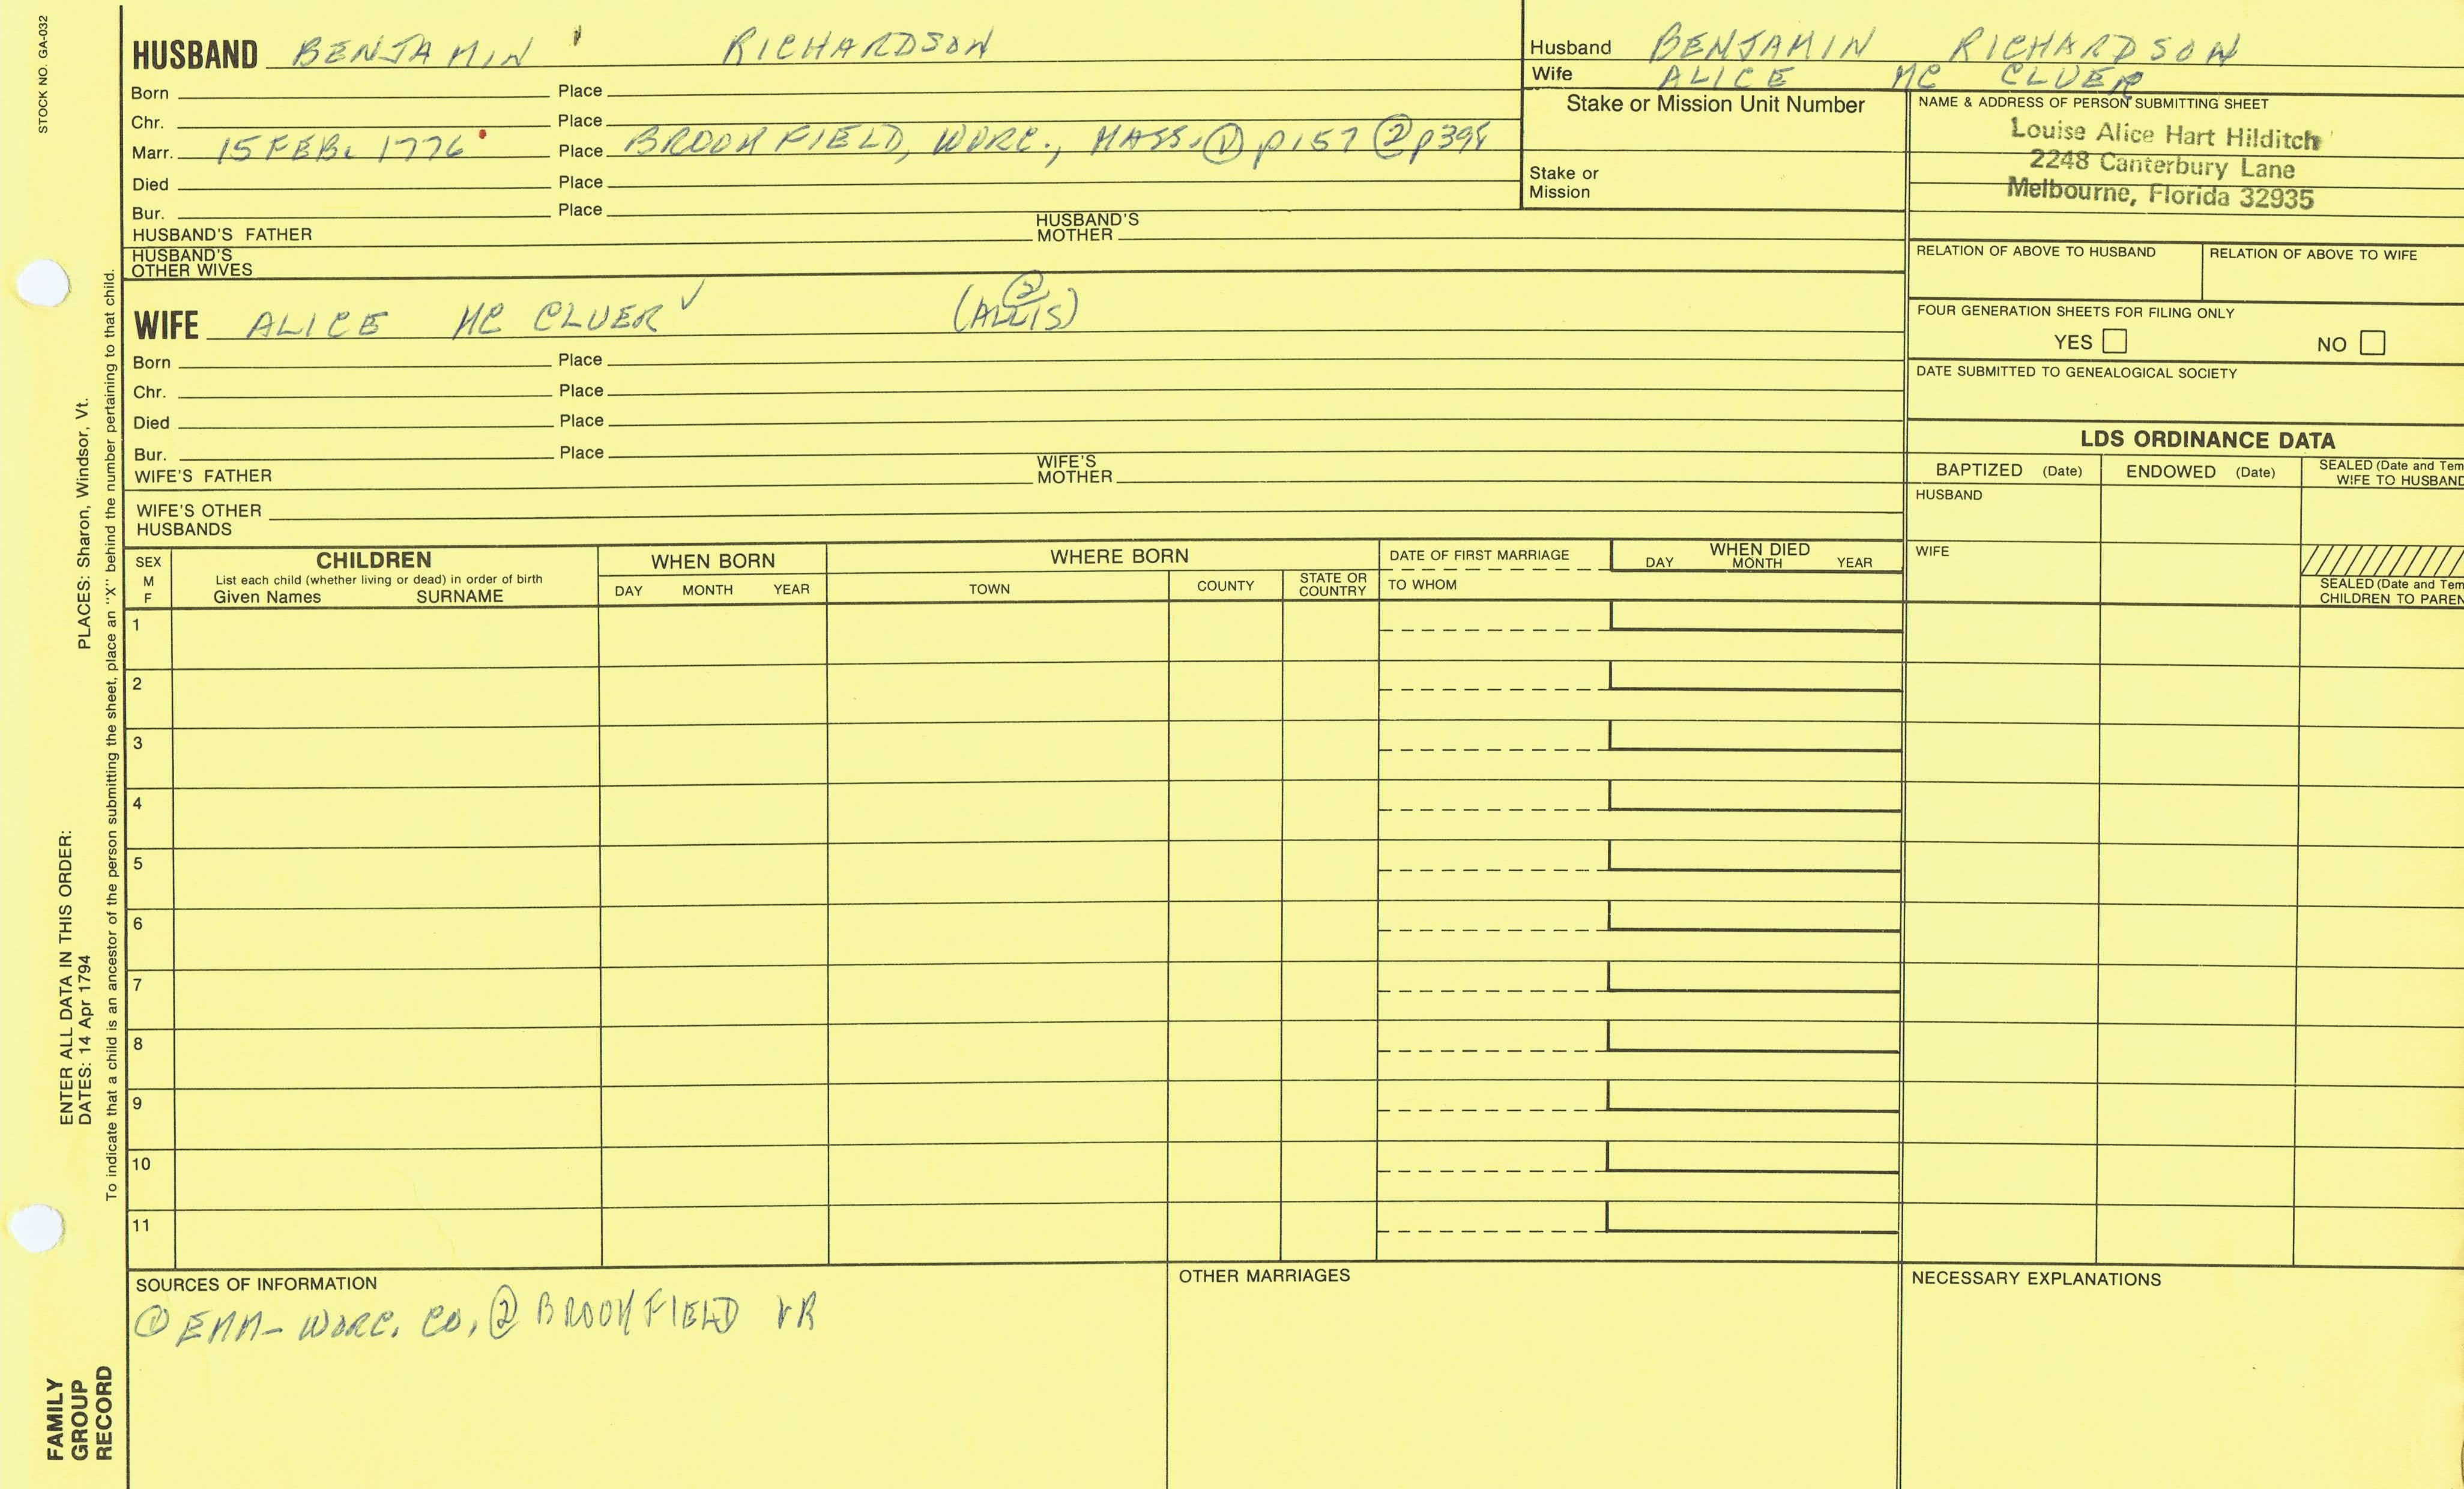 STOCK NO. GA-032
HUSBAND BENJAMIN RICHARDSON
Born Place
Chr. Place
Marr. 15 FEB. 1776 Place BROOKFIELD, WORC., MASS. ① p157 ② p394
Died Place
Bur. Place
HUSBAND'S FATHER HUSBAND'S MOTHER
HUSBAND'S OTHER WIVES
WIFE ALICE MC CLUER ✓ (ALLIS) ②
Born Place
Chr. Place
Died Place
Bur. Place
WIFE'S FATHER WIFE'S MOTHER
WIFE'S OTHER HUSBANDS
Husband BENJAMIN RICHARDSON
Wife ALICE MC CLUER
Stake or Mission Unit Number
Stake or
Mission
NAME & ADDRESS OF PERSON SUBMITTING SHEET
Louise Alice Hart Hilditch
2248 Canterbury Lane
Melbourne, Florida 32935
RELATION OF ABOVE TO HUSBAND RELATION OF ABOVE TO WIFE
FOUR GENERATION SHEETS FOR FILING ONLY
YES NO
DATE SUBMITTED TO GENEALOGICAL SOCIETY
LDS ORDINANCE DATA
BAPTIZED (Date) ENDOWED (Date) SEALED (Date and Tem
WIFE TO HUSBAND
HUSBAND
WIFE
SEALED (Date and Tem
CHILDREN TO PAREN
SEX
M
F
CHILDREN
List each child (whether living or dead) in order of birth
Given Names SURNAME
WHEN BORN
DAY MONTH YEAR
WHERE BORN
TOWN COUNTY STATE OR COUNTRY
DATE OF FIRST MARRIAGE
TO WHOM
WHEN DIED
DAY MONTH YEAR
1
2
3
4
5
6
7
8
9
10
11
SOURCES OF INFORMATION
① EMM- WORC. CO, ② BROOKFIELD VR
OTHER MARRIAGES
NECESSARY EXPLANATIONS
ENTER ALL DATA IN THIS ORDER:
DATES: 14 Apr 1794 PLACES: Sharon, Windsor, Vt.
To indicate that a child is an ancestor of the person submitting the sheet, place an "X" behind the number pertaining to that child.
FAMILY
GROUP
RECORD